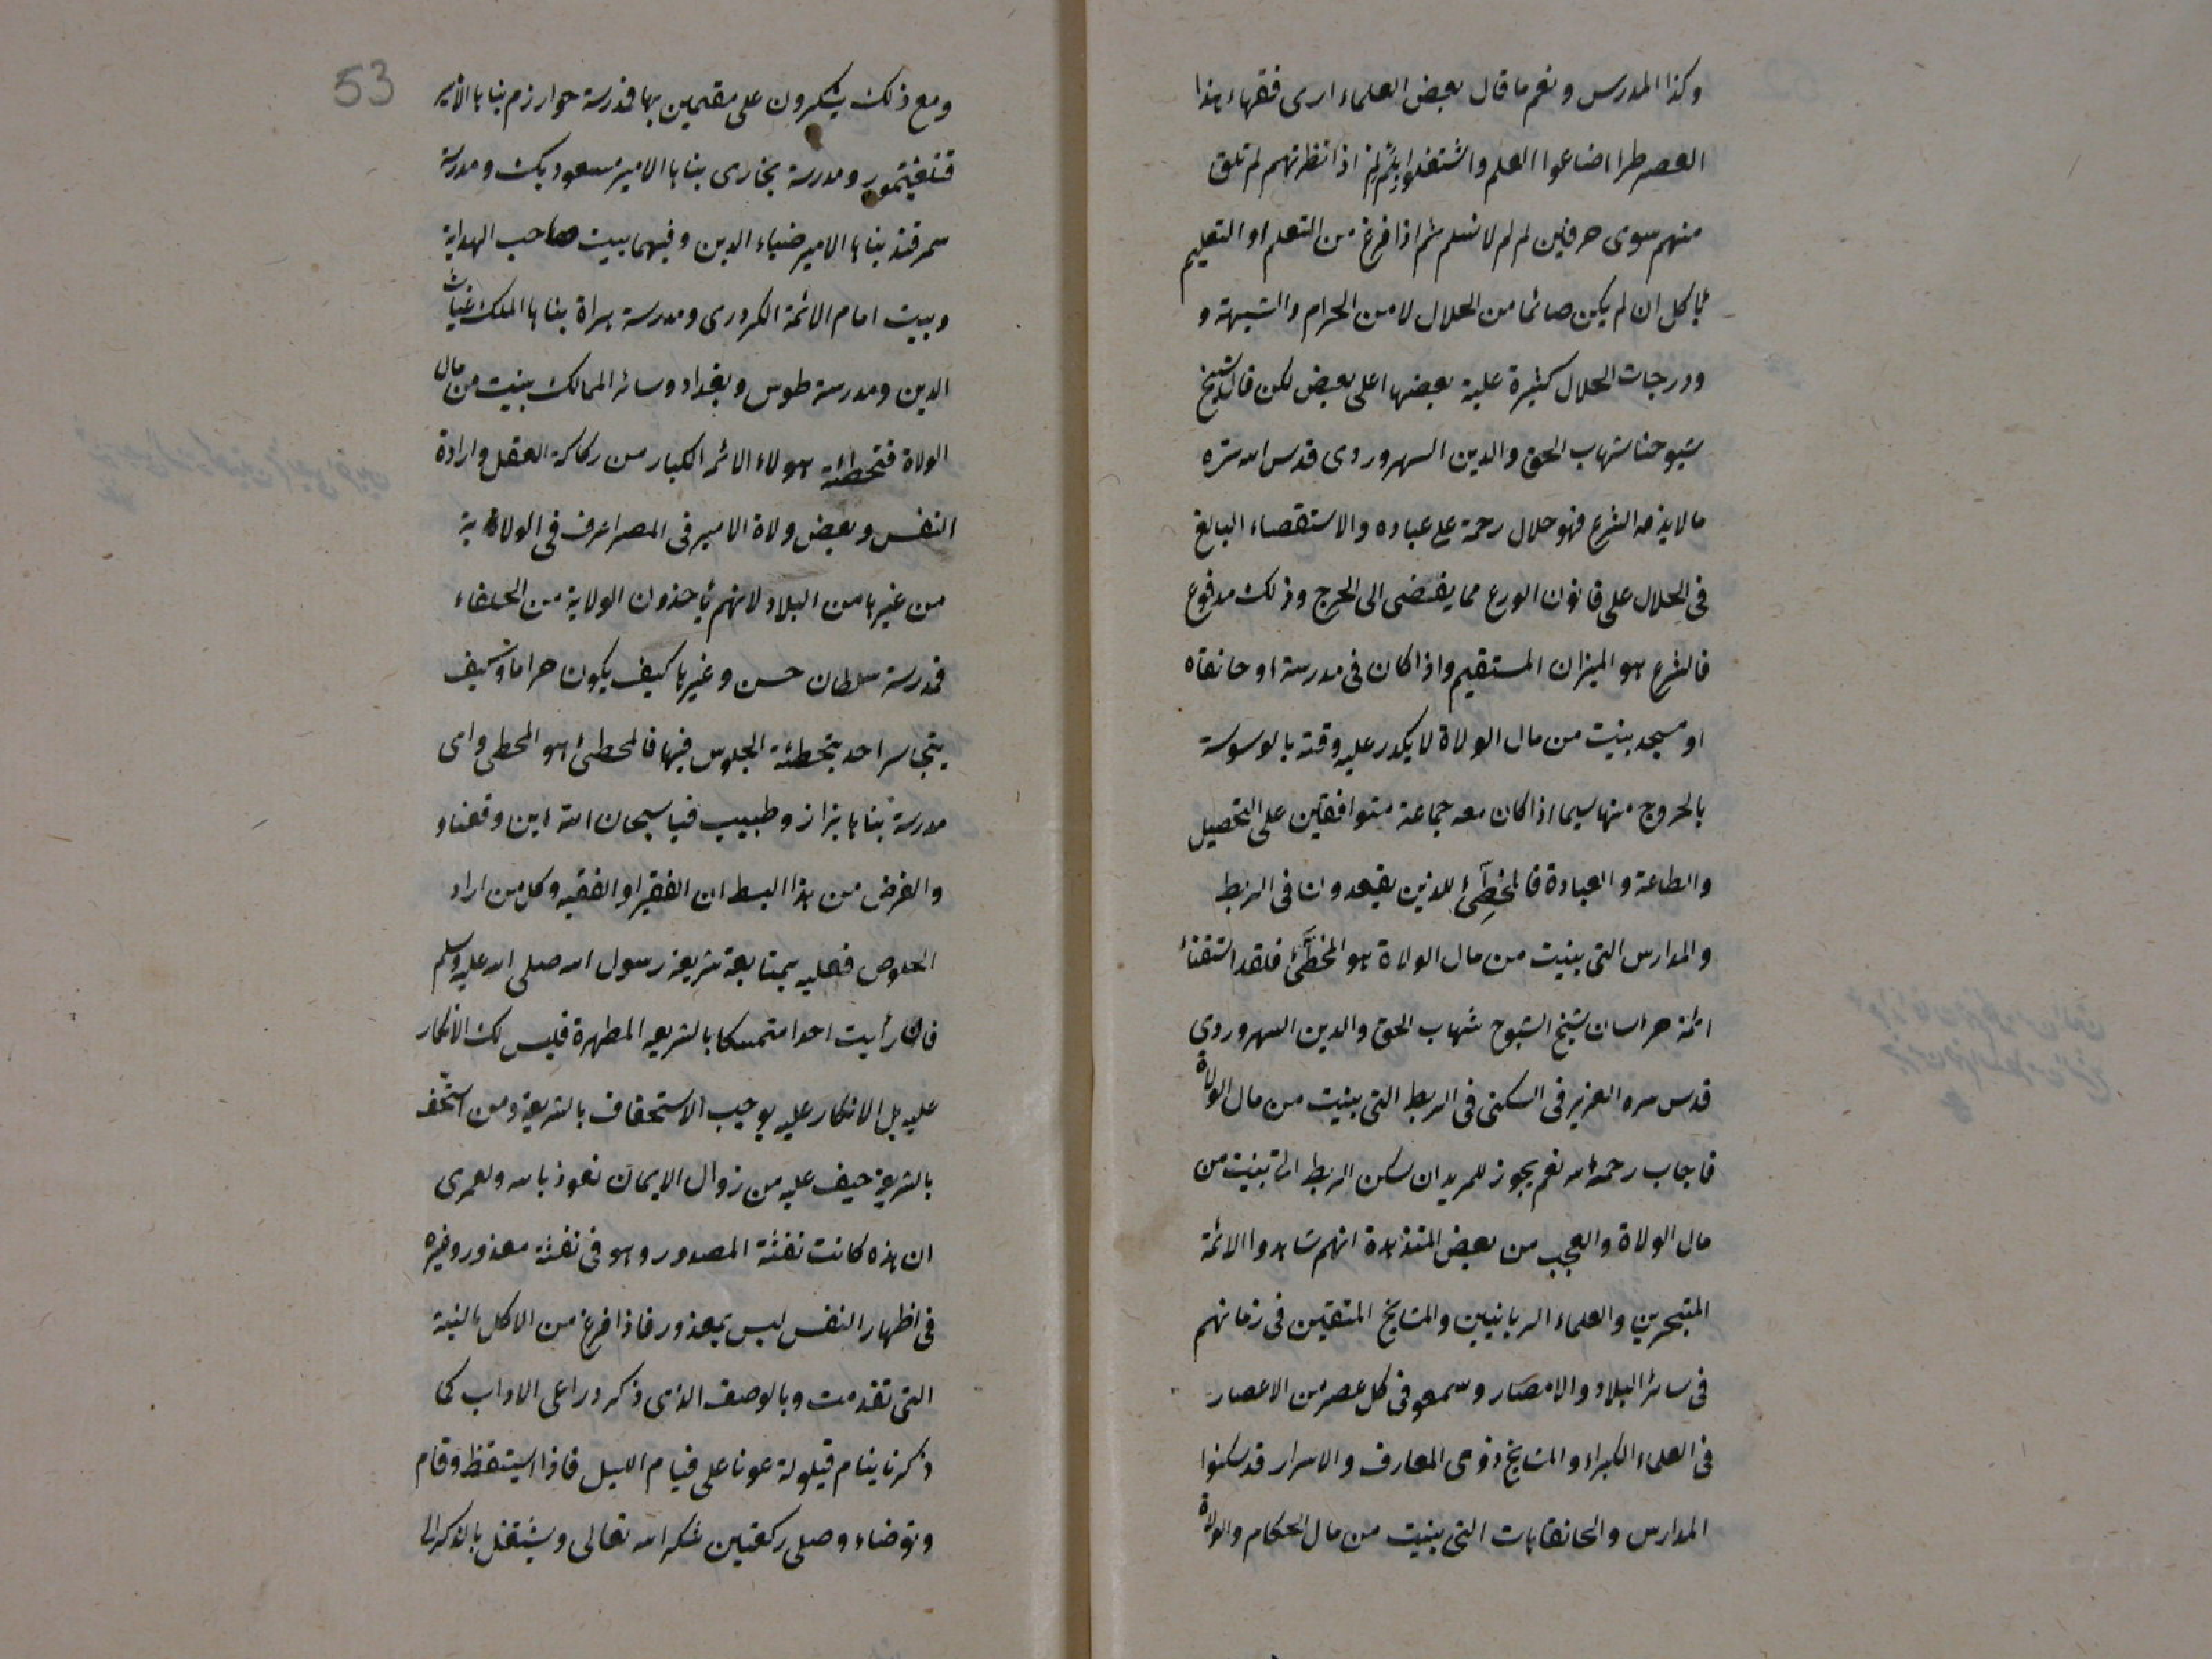 وكذا المدرس ونعم ما قال بعض العلماء ارى فقهاء هذا
العصر طرا اضاعوا العلم واشتغلوا بلم لم اذا نظرتهم لم تلق
منهم سوى حرفين لم لم لا نسلم ثم اذا فرغ من التعلم او التعليم
يأكل ان لم يكن صائما من الحلال لا من الحرام والشبهة و
ودرجات الحلال كثيرة علية بعضها اعلى بعض لكن قال شيخ
شيوخنا شهاب الحق والدين السهروردى قدس الله سره
ما لا يذمه الشرع فهو حلال رحمة على عباده والاستقصاء البالغ
فى الحلال على قانون الورع مما يفضى الى الحرج وذلك مدفوع
فالشرع هو الميزان المستقيم واذا كان فى مدرسة او خانقاه
او مسجد بنيت من مال الولاة لا يكدر عليه وقته بالوسوسة
بالخروج منها سيما اذا كان معه جماعة متوافقين على التحصيل
والطاعة والعبادة فالمخطئ للذين يقعدون فى الربط
والمدارس التى بنيت من مال الولاة هو المخطئ فلقد استفتاء
ائمة خراسان شيخ الشيوخ شهاب الحق والدين السهروردى
قدس سره العزيز فى السكنى فى الربط التى بنيت من مال الولاة
فاجاب رحمه الله نعم يجوز للمريد ان يسكن الربط التى بنيت من
مال الولاة والعجب من بعض المتزهدة انهم شاهدوا الائمة
المتبحرين والعلماء الربانيين والمشايخ المتقين فى زمانهم
فى سائر البلاد والامصار وسمعو فى كل عصر من الاعصار
فى العلماء الكبراء والمشايخ ذوى المعارف والاسرار قد سكنوا
المدارس والخانقاهات التى بنيت من مال الحكام والولاة
53
ومع ذلك ينكرون على مقيمين بها فمدرسة خوارزم بناها الامير
قتلغتمور ومدرسة بخارى بناها الامير مسعود بك ومدرسة
سمرقند بناها الامير ضياء الدين وفيهما بيت صاحب الهداية
وبيت امام الائمة الكرورى ومدرسة هراة بناها الملك غياث
الدين ومدرسة طوس وبغداد وسائر الممالك بنيت من مال
الولاة فتخطئة هولاء الائمة الكبار من ركاكة العقل وارادة
النفس وبعض ولاة الامير فى المصر اعرف فى الولاية
من غيرها من البلاد لانهم يأخذون الولاية من الخلفاء
فمدرسة سلطان حسن وغيرها كيف يكون حراما وكيف
يتجاسر احد بتخطئة الجلوس فيها فالمخطئ هو المخطى واى
مدرسة بناها بزاز وطبيب فيا سبحان الله اين وقعنا و
والغرض من هذا البسط ان الفقير او الفقيه وكل من اراد
الخلوص فعليه بمتابعة شريعة رسول الله صلى الله عليه وسلم
فان رأيت احدا متمسكا بالشريعة المطهرة فليس لك الانكار
عليه بل الانكار عليه يوجب الاستخفاف بالشريعة ومن استخف
بالشريعة خيف عليه من زوال الايمان نعوذ بالله ولعمرى
ان هذه كانت نفثة المصدور وهو فى نفثة معذور وغيره
فى اظهار النفس ليس بمعذور فاذا فرغ من الاكل بالنية
التى تقدمت وبالوصف الذى ذكر وراعى الاداب كما
ذكرنا ينام قيلولة عونا على قيام الليل فاذا استيقظ وقام
وتوضاء وصلى ركعتين شكر الله تعالى ويشتغل بالذكر الى